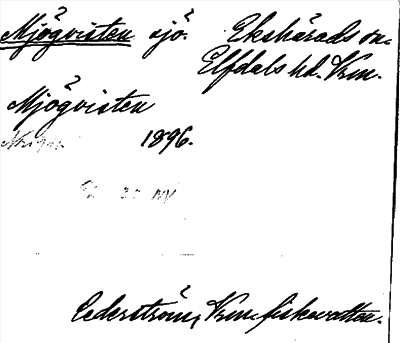 Mjögvisten sjö. Ekshärads sn.
Elfdals hd. Vrm.
Mjögvisten
1896.
Cederström, Vrm. fiskevatten.